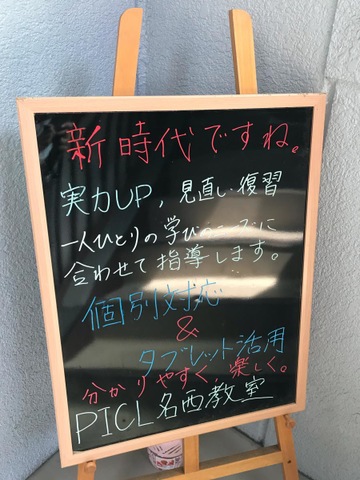 新時代ですね。
実力UP, 見直し復習
一人ひとりの学びのニーズに
合わせて指導します。
個別対応
&
タブレット活用
分かりやすく、楽しく。
PICL名西教室